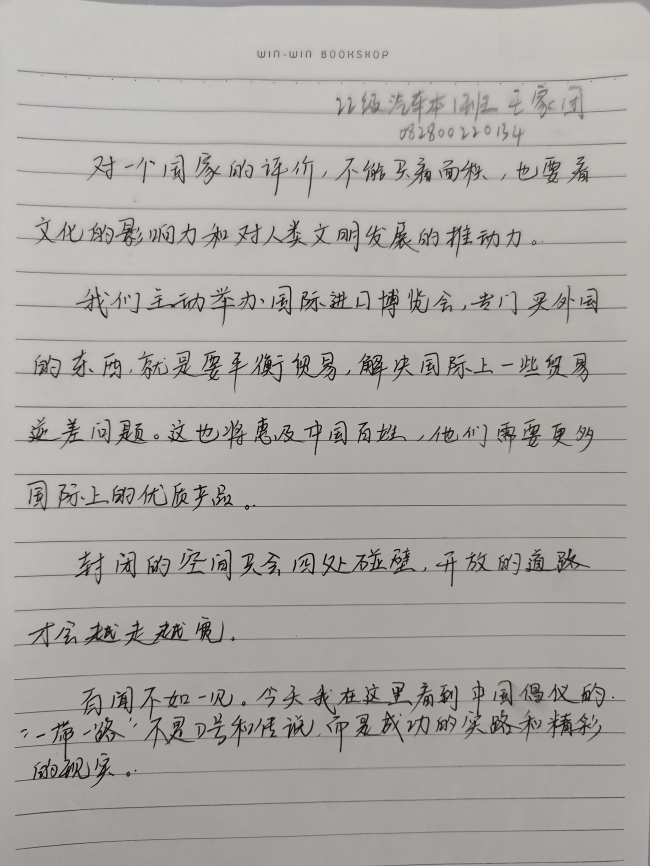 WIN-WIN BOOKSHOP
22级汽车本1班 王家团
082800220134
对一个国家的评价,不能只看面积,也要看
文化的影响力和对人类文明发展的推动力。
我们主动举办国际进口博览会,专门买外国
的东西,就是要平衡贸易,解决国际上一些贸易
逆差问题。这也将惠及中国百姓,他们需要更多
国际上的优质产品。
封闭的空间只会四处碰壁,开放的道路
才会越走越宽.
百闻不如一见。今天我在这里看到中国倡仪的
“一带一路”不是口号和传说,而是成功的实路和精彩
的现实。